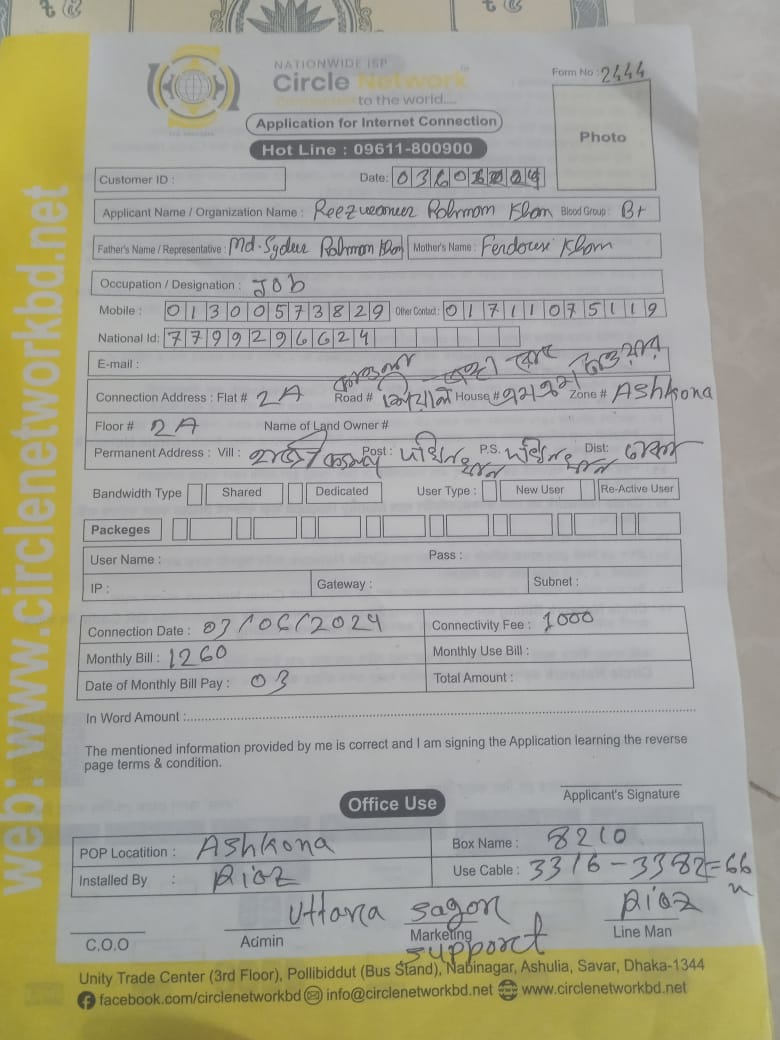 NATIONWIDE ISP
Circle Network
Connected to the world....
Form No : 2444
Application for Internet Connection
Photo
Hot Line : 09611-800900
Customer ID :
Date:
Applicant Name / Organization Name : Reezwaneur Rahman Khan Blood Group : B+
Father's Name / Representative : Md. Sydur Rahman Khan Mother's Name : Ferdousi Khan
Occupation / Designation : JOb
Mobile : 01300573829 Other Contact : 01711075119
National Id: 7799296624
E-mail :
Connection Address : Flat # 2A Road # House # Zone # AShkona
Floor # 2A Name of Land Owner #
Permanent Address : Vill : Post : P.S. Dist:
Bandwidth Type Shared Dedicated User Type : New User Re-Active User
Packeges
User Name : Pass :
IP : Gateway : Subnet :
Connection Date : 03/06/2024 Connectivity Fee : 1000
Monthly Bill : 1260 Monthly Use Bill :
Date of Monthly Bill Pay : 03 Total Amount :
In Word Amount :
The mentioned information provided by me is correct and I am signing the Application learning the reverse
page terms & condition.
Applicant's Signature
Office Use
POP Locatition : AShkona Box Name : 8210
Installed By : Riaz Use Cable : 3316-3382=66
m
Uttara Sagor Riaz
C.O.O Admin Marketing Line Man
Support
Unity Trade Center (3rd Floor), Pollibiddut (Bus Stand), Nabinagar, Ashulia, Savar, Dhaka-1344
facebook.com/circlenetworkbd info@circlenetworkbd.net www.circlenetworkbd.net
web: www.circlenetworkbd.net